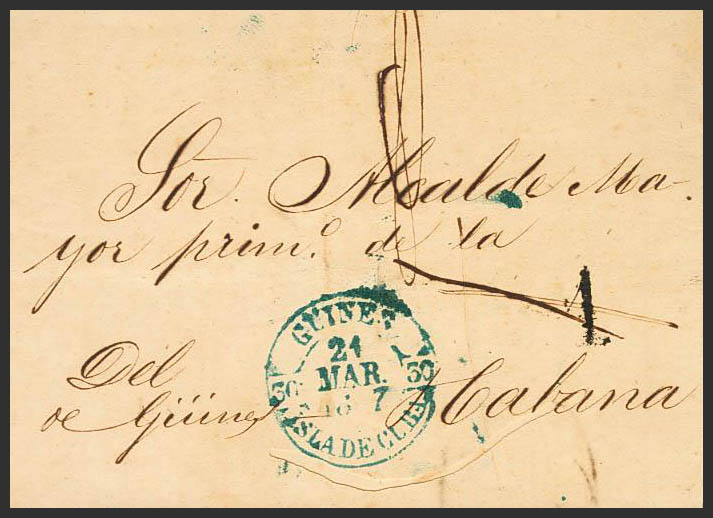 Sor. Alcalde Ma-
yor prim.º de la
Habana
Del
de Güines
GÜINES
21
MAR.
30 30
ISLA DE CUBA
1